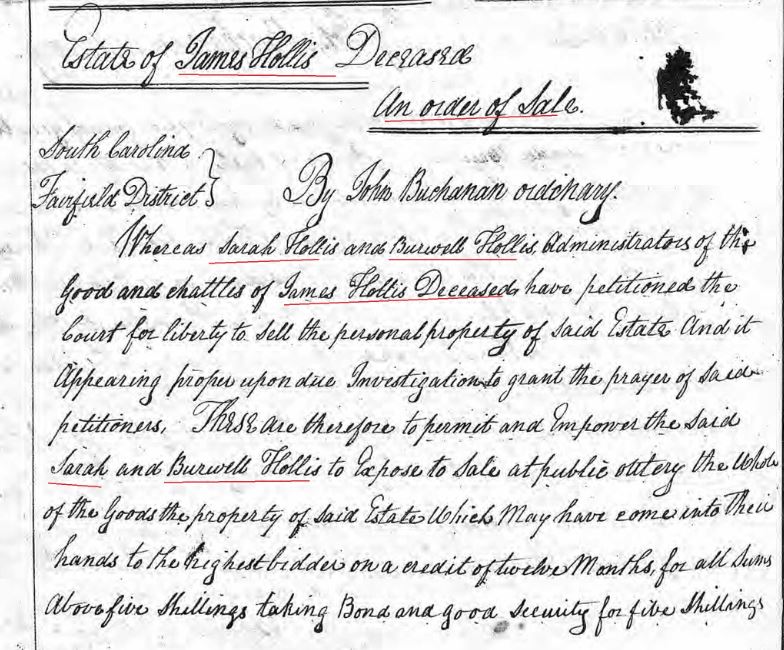 Estate of James Hollis Deceased
An order of Sale.
South Carolina
Fairfield District } By John Buchanan ordinary.
Whereas Sarah Hollis and Burwell Hollis, Administrators of the
Good and chattles of James Hollis Deceased, have petitioned the
Court for liberty to sell the personal property of said Estate And it
Appearing proper upon due Investigation to grant the prayer of said
petitioners, These are therefore to permit and Empower the said
Sarah and Burwell Hollis to Expose to Sale at public outcry the Whole
of the Goods the property of said Estate Which May have come into Their
hands to the highest bidder on a credit of twelve Months, for all Sums
Above five Shillings taking Bond and good Security for five Shillings